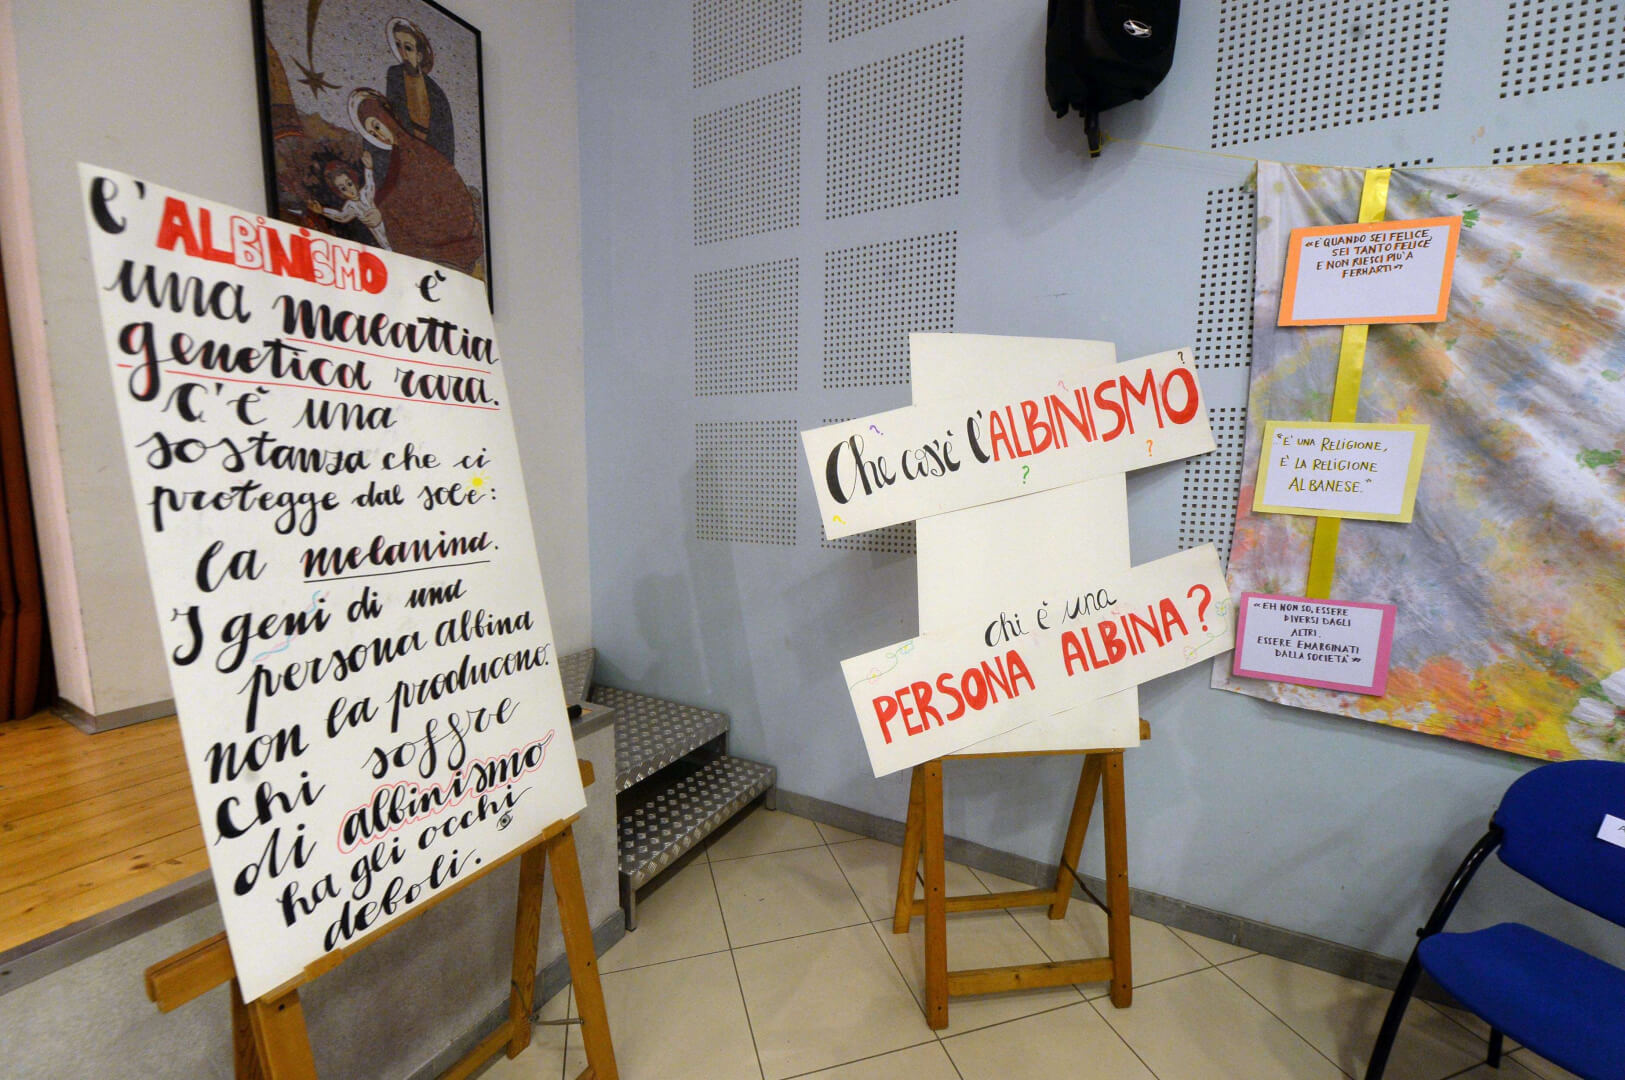 e' ALBINISMO è
una malattia
genetica rara.
C'è una
sostanza che ci
protegge dal sole:
la melanina.
I geni di una
persona albina
non la producono.
Chi soffre
di albinismo
ha gli occhi
deboli.
Che cos'è l'ALBINISMO
chi è una
PERSONA ALBINA?
«È QUANDO SEI FELICE,
SEI TANTO FELICE
E NON RIESCI PIU' A
FERMARTI»
"E' UNA RELIGIONE,
È LA RELIGIONE
ALBANESE."
«EH NON SO, ESSERE
DIVERSI DAGLI
ALTRI.
ESSERE EMARGINATI
DALLA SOCIETÀ»